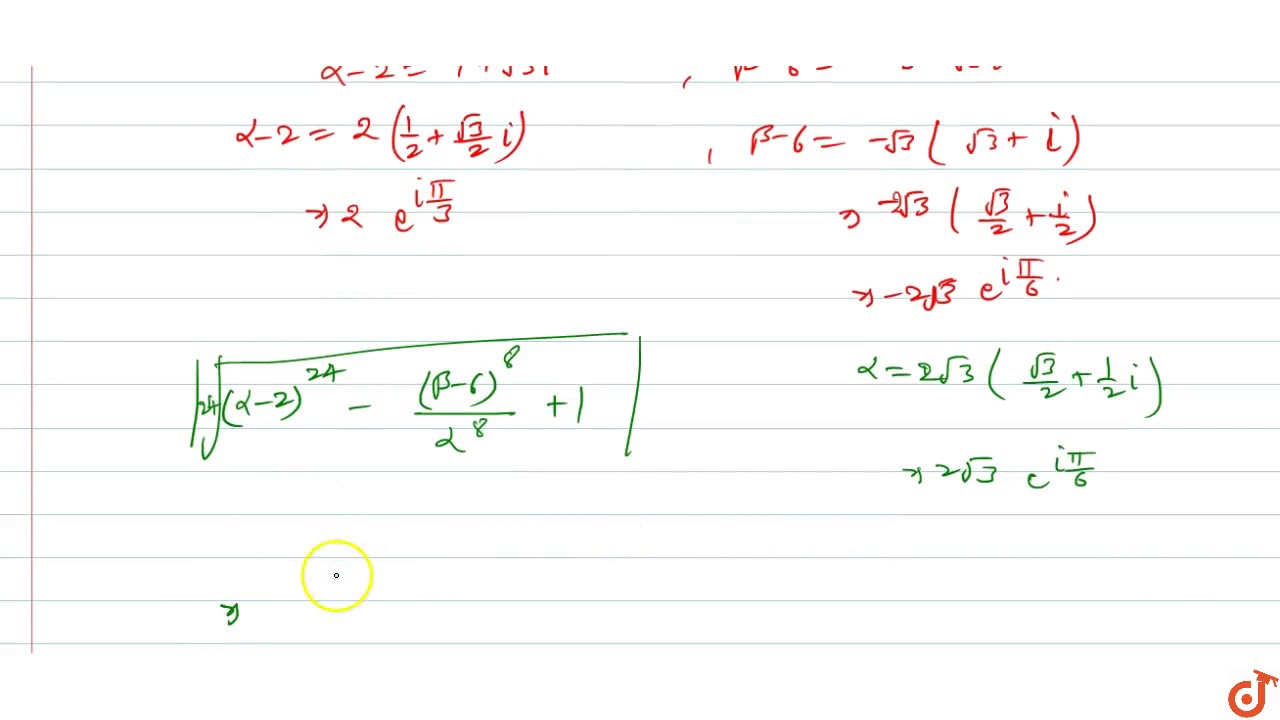 α-2 = 2 (1/2 + √3/2 i) , β-6 = -√3 ( √3 + i )
⇒ 2 e^{iπ/3}
⇒ -2√3 ( √3/2 + i/2 )
⇒ -2√3 e^{iπ/6} .
| ²⁴√( (α-2)^24 - (β-6)^8 / α^8 + 1 ) |
α = 2√3 ( √3/2 + 1/2 i )
⇒ 2√3 e^{iπ/6}
⇒